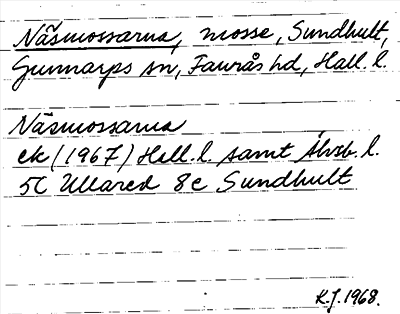 Näsmossarna, mosse, Sundhult,
Gunnarps sn, Faurås hd, Hall. l.
Näsmossarna
ek (1967) Hall. l. samt Älvsb. l.
5C Ullared 8e Sundhult
K.J. 1968.